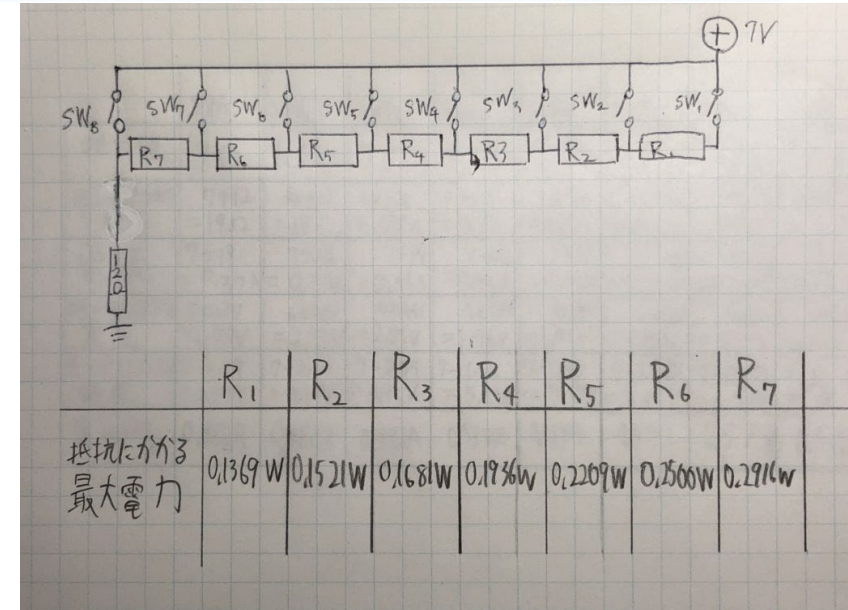 7V
SW8 SW7 SW6 SW5 SW4 SW3 SW2 SW1
R7 R6 R5 R4 R3 R2 R1
120
R1 R2 R3 R4 R5 R6 R7
抵抗にかかる
最大電力
0.1369W 0.1521W 0.1681W 0.1936W 0.2209W 0.2500W 0.2916W